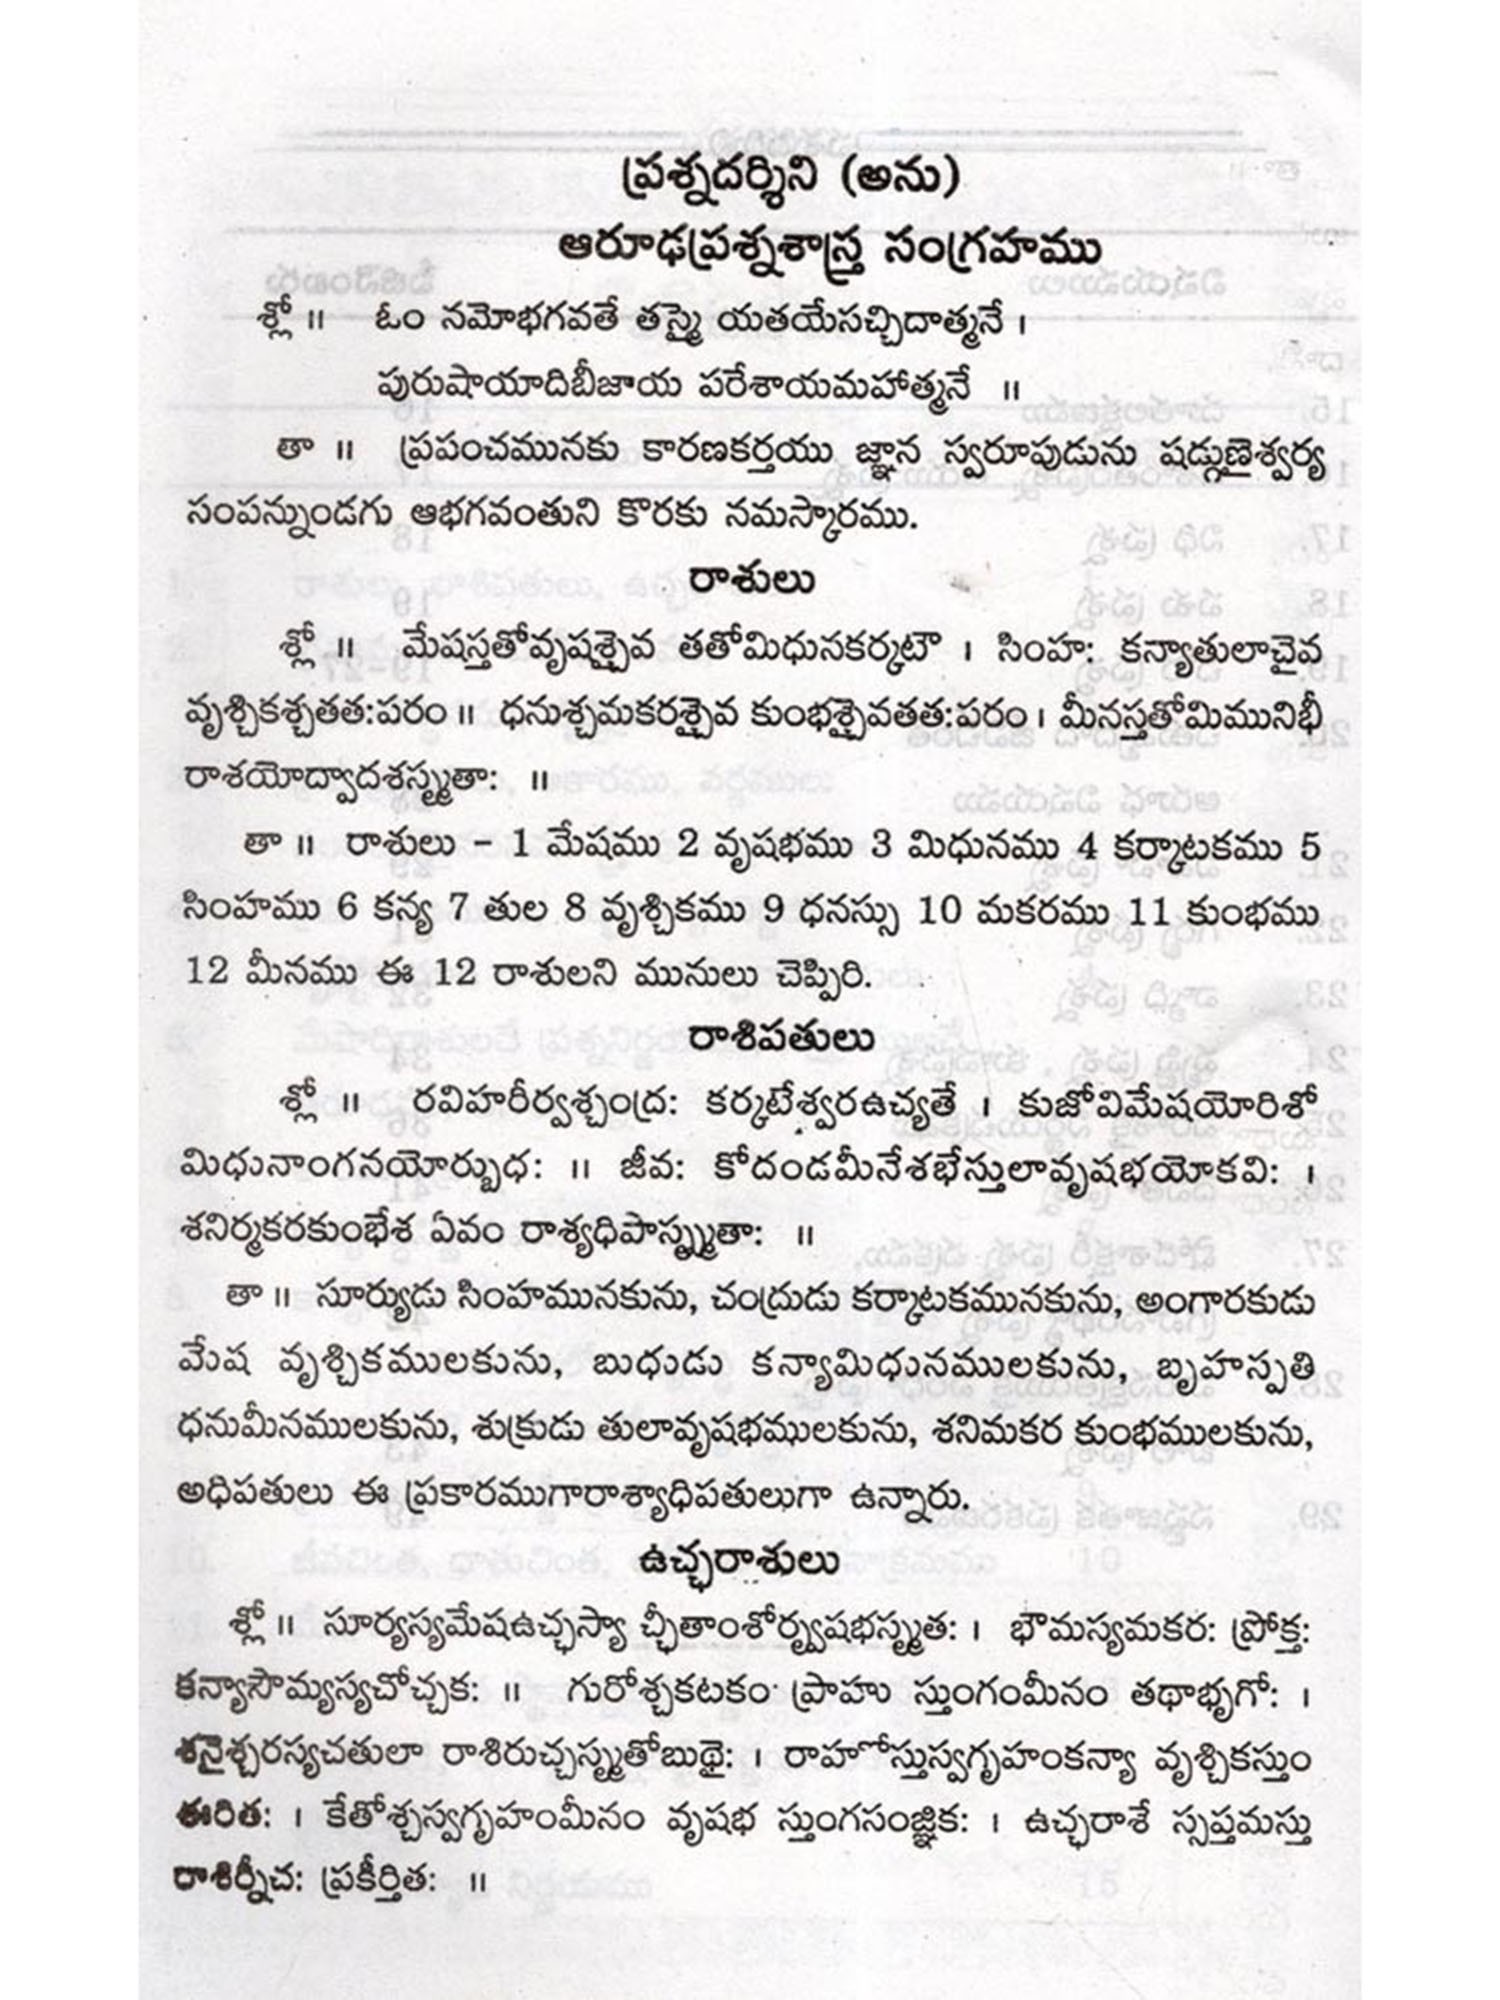 ప్రశ్నదర్శిని (అను)
ఆరూఢప్రశ్నశాస్త్ర సంగ్రహము
శ్లో ॥ ఓం నమోభగవతే తస్మై యతయేసచ్చిదాత్మనే ।
పురుషాయాదిబీజాయ పరేశాయమహాత్మనే ॥
తా ॥ ప్రపంచమునకు కారణకర్తయు జ్ఞాన స్వరూపుడును షడ్గుణైశ్వర్య
సంపన్నుండగు ఆభగవంతుని కొరకు నమస్కారము.
రాశులు
శ్లో ॥ మేషస్తతోవృషశ్చైవ తతోమిధునకర్కటౌ । సింహః కన్యాతులాచైవ
వృశ్చికశ్చతతఃపరం ॥ ధనుశ్చమకరశ్చైవ కుంభశ్చైవతతఃపరం । మీనస్తతోమిమునిభీ
రాశయోద్వాదశస్మృతాః ॥
తా ॥ రాశులు - 1 మేషము 2 వృషభము 3 మిధునము 4 కర్కాటకము 5
సింహము 6 కన్య 7 తుల 8 వృశ్చికము 9 ధనస్సు 10 మకరము 11 కుంభము
12 మీనము ఈ 12 రాశులని మునులు చెప్పిరి.
రాశిపతులు
శ్లో ॥ రవిహరీర్వశ్చంద్రః కర్కటేశ్వరఉచ్యతే । కుజోవిమేషయోరిశో
మిధునాంగనయోర్బుధః ॥ జీవః కోదండమీనేశభేస్తులావృషభయోకవిః ।
శనిర్మకరకుంభేశ ఏవం రాశ్యధిపాస్మృతాః ॥
తా ॥ సూర్యుడు సింహమునకును, చంద్రుడు కర్కాటకమునకును, అంగారకుడు
మేష వృశ్చికములకును, బుధుడు కన్యామిధునములకును, బృహస్పతి
ధనుమీనములకును, శుక్రుడు తులావృషభములకును, శనిమకర కుంభములకును,
అధిపతులు ఈ ప్రకారముగారాశ్యాధిపతులుగా ఉన్నారు.
ఉచ్ఛరాశులు
శ్లో ॥ సూర్యస్యమేషఉచ్ఛస్యా చ్ఛీతాంశోర్వృషభస్మృతః । భౌమస్యమకరః ప్రోక్తః
కన్యాసౌమ్యస్యచోచ్చకః ॥ గురోశ్చకటకం ప్రాహు స్తుంగంమీనం తథాభృగోః ।
శనైశ్చరస్యచతులా రాశిరుచ్చస్మృతోబుథైః । రాహోస్తుస్వగృహంకన్యా వృశ్చికస్తుం
ఈరితః । కేతోశ్చస్వగృహంమీనం వృషభ స్తుంగసంజ్ఞికః । ఉచ్ఛరాశే స్సప్తమస్తు
రాశిర్నీచః ప్రకీర్తితః ॥